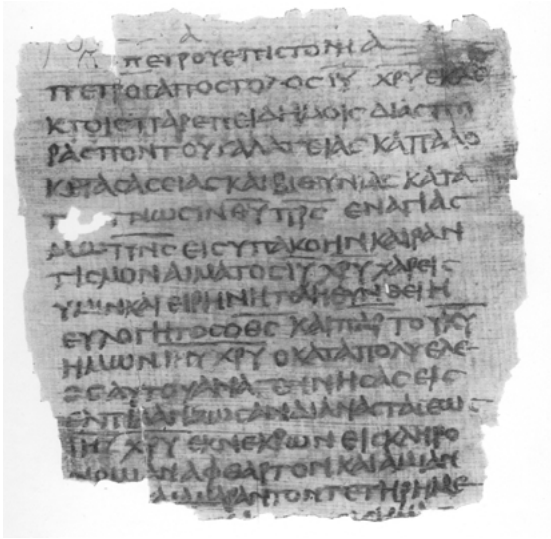 ΠΕΤΡΟΥ ΕΠΙΣΤΟΛΗ Α
ΠΕΤΡΟΣ ΑΠΟΣΤΟΛΟΣ ΙΥ ΧΡΥ ΕΚΛΕ
ΚΤΟΙΣ ΠΑΡΕΠΕΙΔΗΜΟΙΣ ΔΙΑΣΠΟ
ΡΑΣ ΠΟΝΤΟΥ ΓΑΛΑΤΕΙΑΣ ΚΑΠΠΑΔΟ
ΚΙΑΣ ΑΣΕΙΑΣ ΚΑΙ ΒΙΘΥΝΙΑΣ ΚΑΤΑ
ΓΝΩΣΙΝ ΘΥ ΠΡΣ ΕΝ ΑΓΙΑΣ
ΕΙΣ ΥΠΑΚΟΗΝ ΚΑΙ ΡΑΝ
ΤΙΣΜΟΝ ΑΙΜΑΤΟΣ ΙΥ ΧΡΥ ΧΑΡΕΙΣ
ΥΜΙΝ ΚΑΙ ΕΙΡΗΝΗ ΠΛΗΘΥΝΘΕΙΗ
ΕΥΛΟΓΗΤΟΣ Ο ΘΣ ΚΑΙ ΠΑΡ ΤΟΥ ΚΥ
ΗΜΩΝ ΙΗΥ ΧΡΥ Ο ΚΑΤΑ ΠΟΛΥ ΕΛΕ
ΟΣ ΑΥΤΟΥ ΑΝΑΓΕΝΝΗΣΑΣ ΕΙΣ
ΖΩΣΑΝ ΔΙ ΑΝΑΣΤΑΣΕΩΣ
ΙΗΥ ΧΡΥ ΕΚ ΝΕΚΡΩΝ ΕΙΣ ΚΛΗΡΟ
ΑΦΘΑΡΤΟΝ ΚΑΙ ΑΜΙΑΝ
ΑΜΑΡΑΝΤΟΝ ΤΕΤΗΡΗΜΕ